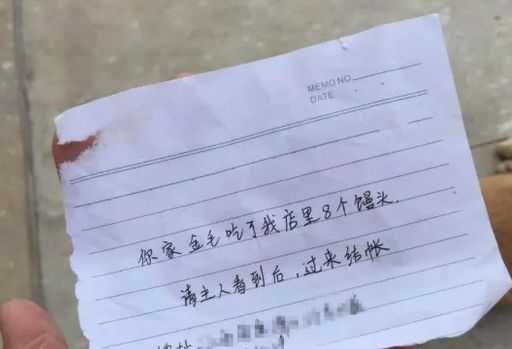 MEMO NO.
DATE
你家金毛吃了我店里8个馒头.
请主人看到后，过来结帐
地址